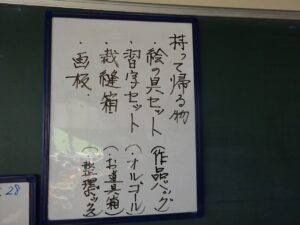 持って帰る物
・絵の具セット (作品バッグ)
・習字セット (・オルゴール)
・裁縫箱 (・お道具箱)
・画板 (整理ボックス)
28